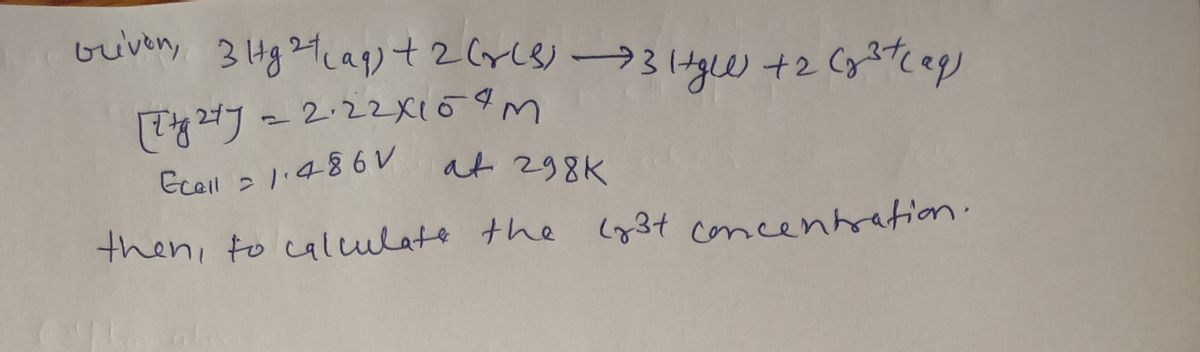 Given, 3 Hg²⁺(aq) + 2 Cr(s) → 3 Hg(l) + 2 Cr³⁺(aq)
[Hg²⁺] = 2.22×10⁻⁴ M
Ecell = 1.486V at 298K
then, to calculate the Cr3+ concentration.